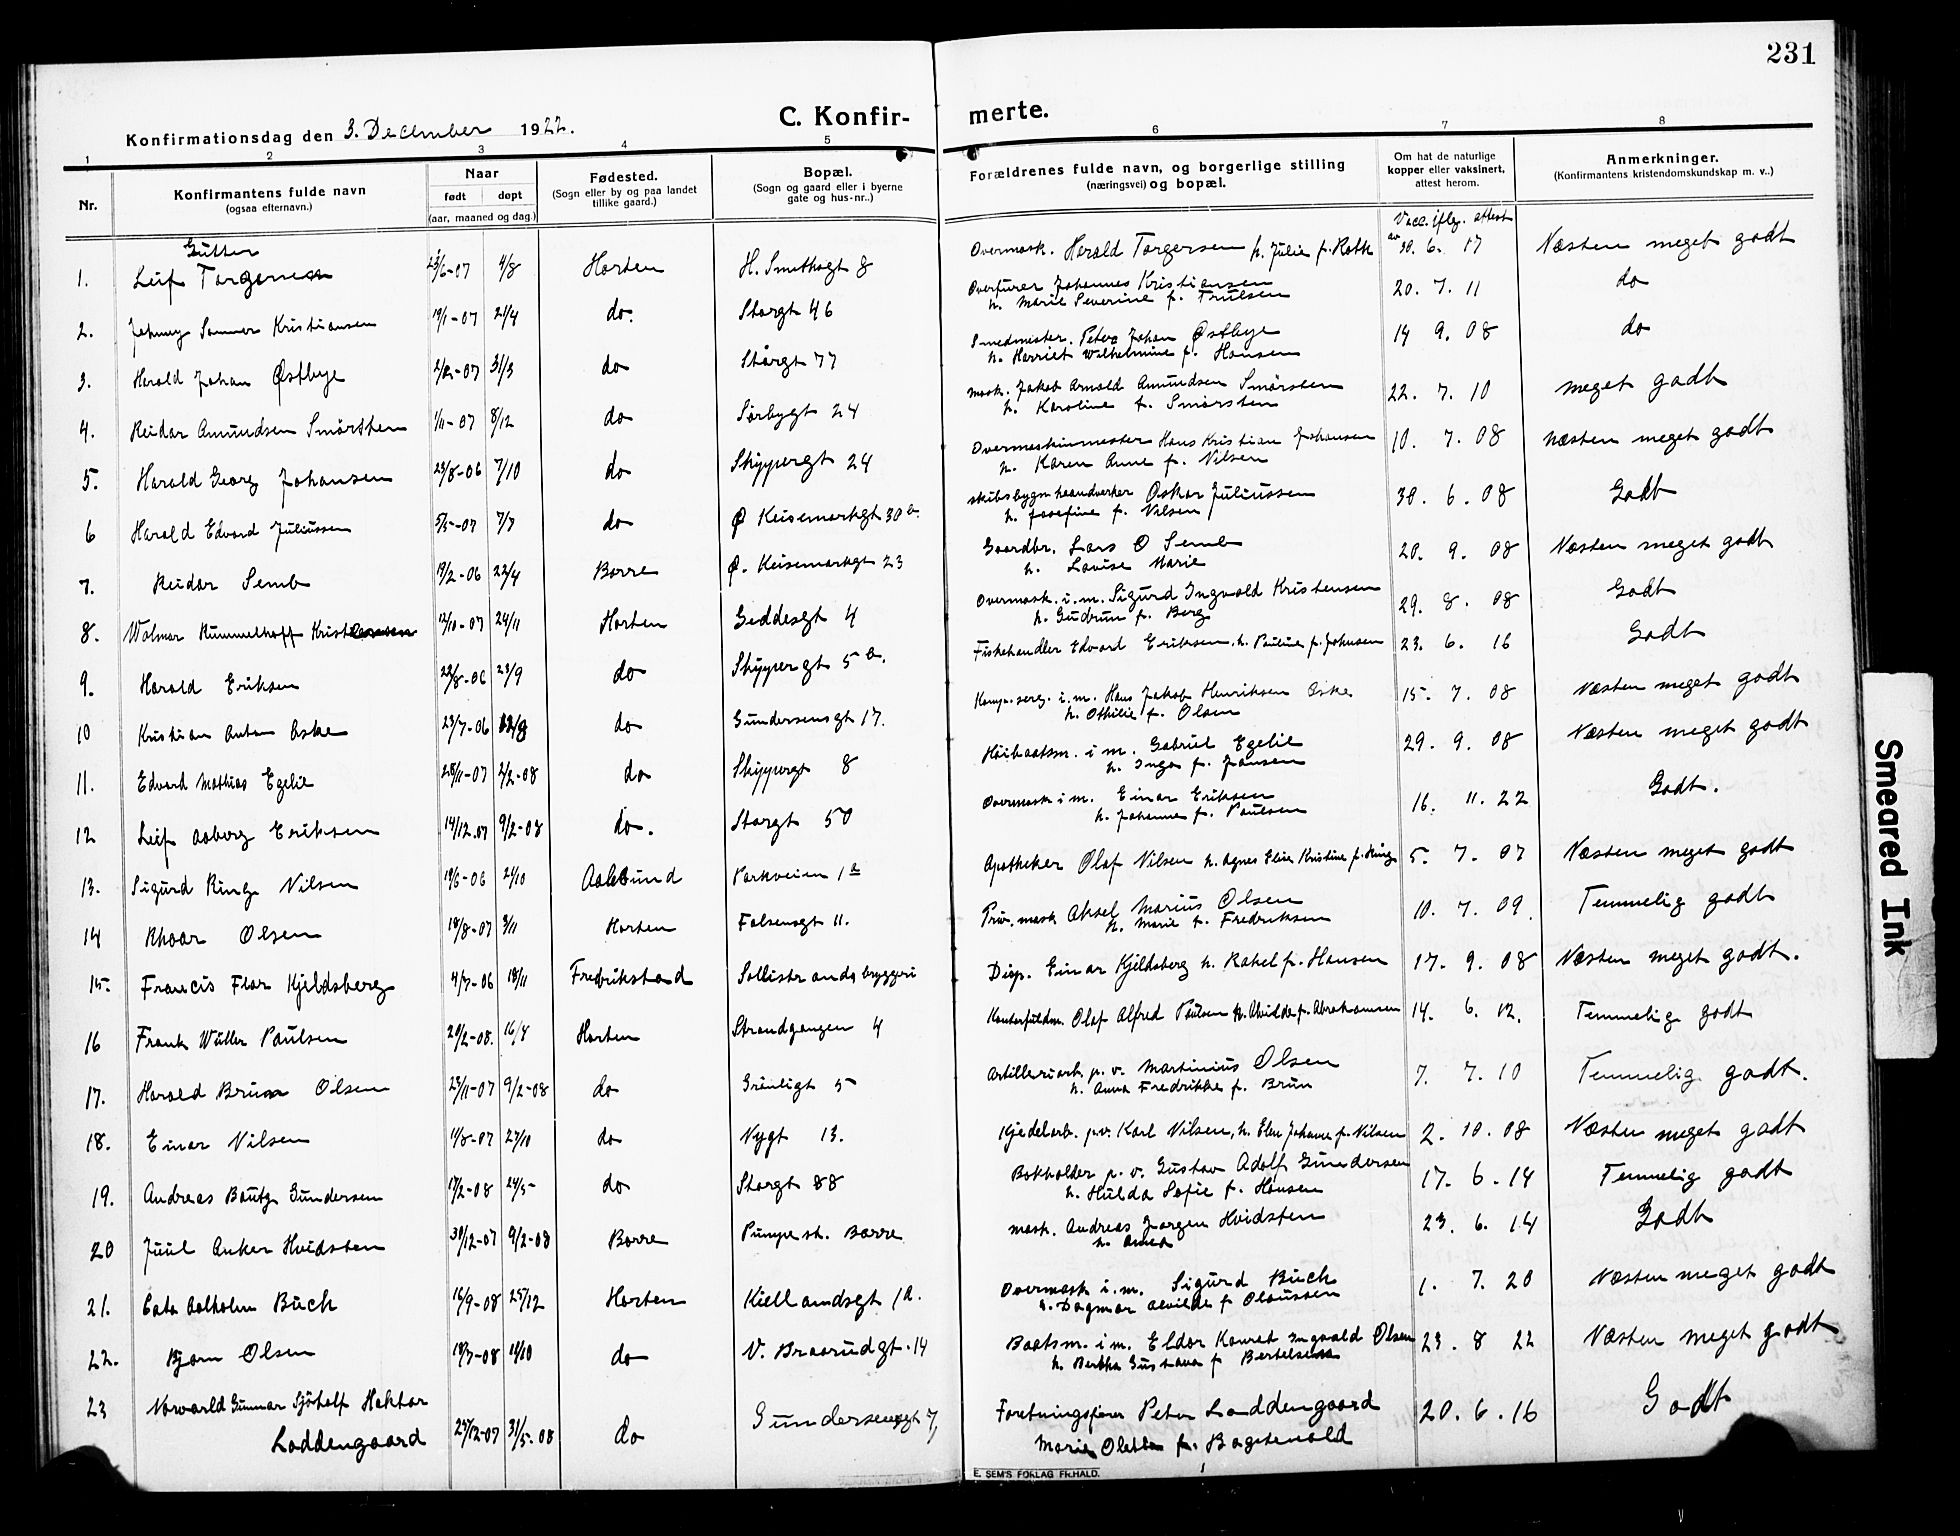 231
Konfirmationsdag den 3. December 1922.
C. Konfir- merte.
1 2 3 4 5 6 7 8
Nr.
Konfirmantens fulde navn
(ogsaa efternavn.)
Naar
født døpt
(aar, maaned og dag.)
Fødested.
(Sogn eller by og paa landet
tillike gaard.)
Bopæl.
(Sogn og gaard eller i byerne
gate og hus-nr..)
Forældrenes fulde navn, og borgerlige stilling
(næringsvei) og bopæl.
Om hat de naturlige
kopper eller vaksinert,
attest herom.
Anmerkninger.
(Konfirmantens kristendomskundskap m. v..)
Gutter
Vacc. iflg. attest av
1. Leif Torgersen 23/6-07 4/8 Horten H. Smithsgt 8 Overmask. Harald Torgersen h. Julie f. 30. 6. 17 Næsten meget godt
2. Johnny Kristiansen 19/1-07 21/4 do. Storgt 46 Overfurer Johannes Kristiansen
h. Marie Severine f. Trulsen 20. 7. 11 do
3. Harald Johan Østbye 31/3 do Storgt 77 Smedmester. Peter Johan Østbye
h. Harriet Wilhelmine f. Hansen 14 9. 08 do
4. Reidar Amundsen Smørsten 1/11-07 8/12 do Sørbygt 24 mask. Jakob Arnold Amundsen Smørsten
h. Karoline f. Smørsten 22. 7. 10 meget godt
5. Harald Georg Johansen 23/8-06 7/10 do Skippergt 24 Overmaskinmester Hans Kristian Johansen
h. Karen Anne f. Nilsen 10. 7. 08 næsten meget godt
6 Harald Edvard Juliussen 5/5-07 7/7 do Ø Keisemarkgt 30 b. skibsbygn haandverker Oskar Juliussen
h. Josefine f. Nilsen 30. 6. 08 Godt
7. Reidar Semb 19/2-06 22/4 Borre Ø. Keisemarkgt 23 Gaardbr. Lars O Semb
h. Lovise Marie 20. 9. 08 Næsten meget godt
8. Walmar Rummelhoff Kristensen 12/10-07 24/11 Horten Geddesgt 4 Overmask. i.m. Sigurd Ingvald Kristensen
h. Gudrun f. Berg 29. 8. 08 Godt
9. Harald Eriksen 22/8-06 23/9 do Skippergt 5 b. Fiskehandler Edvard Eriksen. h. Pauline f. Johnsen 23. 6. 16 Godt
10 Kristian Anton Aske 23/7-06 do Gundersensgt 17. Komp.serg. i.m. Hans Jakob Henriksen Aske
h. Othilie f. Olsen 15. 7. 08 Næsten meget godt
11. Edvard Mathias Egelie 28/11-07 2/2-08 do Skippergt 8 Høibaatsm. i m. Gabriel Egelie
h. Inga f. Jansen 29. 9. 08 Næsten meget godt
12 Leif Aaberg Eriksen 14/12.07 9/2-08 do. Storgt 50 Overmask i m. Einar Eriksen
h. Johanne f. Paulsen 16. 11. 22 Godt.
13. Sigurd Ring Nilsen 19/6-06 21/10 Aalesund Parkveien 1 a Apotheker Olaf Nilsen h. Agnes Elise Kristine f. Ring 5. 7. 07 Næsten meget godt
14 Rhoar Olsen 18/8-07 3/11 Horten Falsensgt 11. Priv. mask Aksel Marius Olsen
h. Marie f. Fredriksen 10. 7. 09. Temmelig godt
15. Francis Flor Kjeldsberg 4/7-06 18/11 Fredrikstad Sollistrands bryggeri Disp. Einar Kjeldsberg h. Rakel f. Hansen 17. 9. 08 Næsten meget godt.
16 Frank Wüller Paulsen 20/2-08. 16/8 Horten Strandgangen 4 Kontorfuldm. Olaf Alfred Paulsen h. Alvilde f. Abrahamsen 14. 6. 12. Temmelig godt
17. Harald Brun Olsen 23/11-07 9/2-08 do Grønligt 5 Artilleriarb. p. v. Martinius Olsen
h. Anna Fredrikke f. Brun 7. 7. 10 Temmelig godt.
18. Einar Nilsen 11/8-07 27/10 do Nygt 13. Kjedelarb. p.v. Karl Nilsen, h. Elen Johanne f. Nilsen 2. 10. 08 Næsten meget godt
19. Andreas Bautz Gundersen 17/2-08 24/5- do Storgt 88 Bokholder p. v. Gustav Adolf Gundersen
h. Hulda Sofie f. Hansen 17. 6. 14 Temmelig godt
20 Juul Anker Hvidsten 30/12-07 9/2-08 Borre Pumpe st. Borre mask. Andreas Jørgen Hvidsten
h. Anna 23. 6. 14 Godt
21. Cato Aalholm Buch 16/9-08 25/12 Horten Kiellandsgt 1 a. Overmask i.m. Sigurd Buch
h. Dagmar Alvilde f Olaussen 1. 7. 20 Næsten meget godt
22. Bjørn Olsen 19/7-08 18/10 do V. Braarudgt. 14 Baatsm. i m. Eldor Konrat Ingvald Olsen
h. Bertha Gustava f Bertelsen 23. 8 22 Næsten meget godt
23 Norvarld Gunnar Sjøtolf Hektor
Loddengaard 27/12-07 31/5-08 do Gundersensgt 7, Forretningsfører Peter Loddengaard
Marie Oletta f. Bogstevold 20. 6. 16 Godt
E. SEM'S FORLAG FR.HALD.
Smeared Ink